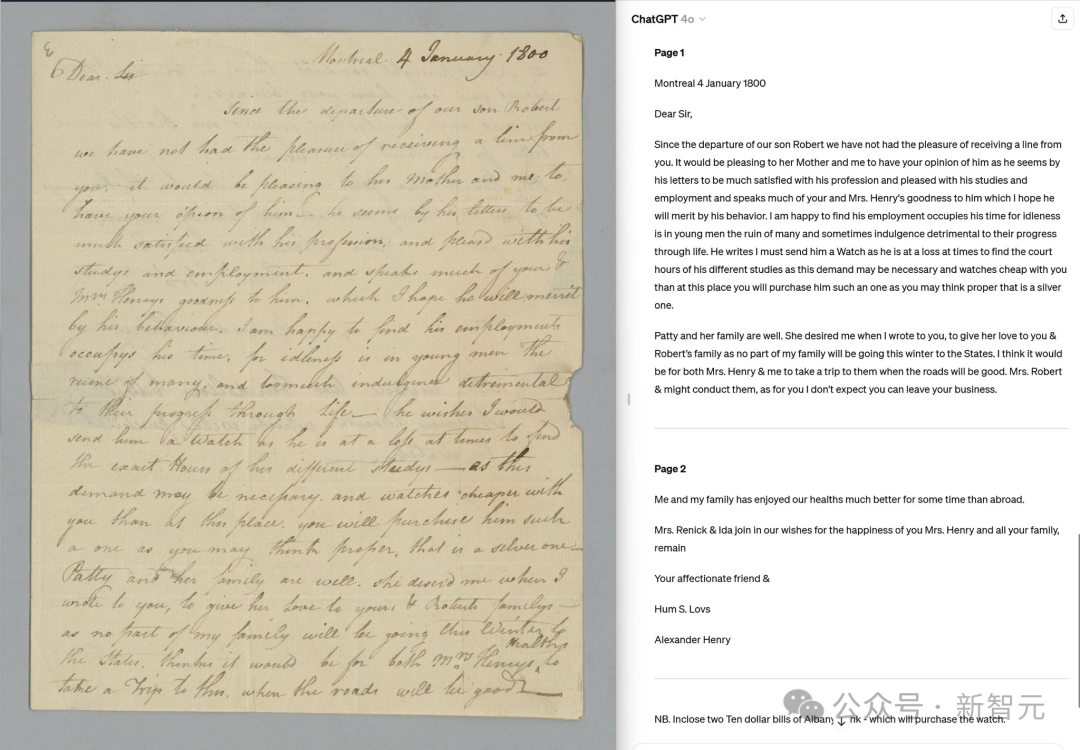 Montreal 4 January 1800
Dear Sir
Since the departure of our son Robert
we have not had the pleasure of receiving a line from
you. it would be pleasing to his Mother and me to
have your opion of him — he seems by his letters to be
much satisfied with his profission, and pleasd with his
studys and employment. and speaks much of yours &
Mrs Henrys goodness to him. which I hope he will merrit
by his behaviour. I am happy to find his employments
occupys his time, for idleness is in young men the
ruine of many, and toomuch indulgence detrimental
to their progress through Life — he wishes I would
send him a Watch as he is at a loss at times to find
the exact Hours of his different studys — as this
demand may be necessary. and watches cheaper with
you than at this place. you will purchase him such
a one as you may think proper, that is a silver one —
Patty and her family are well. she desird me when I
wrote to you, to give her Love to yours & Roberts familys —
as no part of my family will be going this Winter to
the States. thinks it would be for both Mrs Henrys Healths to
take a Trip to this. when the roads will be good —
ChatGPT 4o
Page 1
Montreal 4 January 1800
Dear Sir,
Since the departure of our son Robert we have not had the pleasure of receiving a line from
you. It would be pleasing to her Mother and me to have your opinion of him as he seems by
his letters to be much satisfied with his profession and pleased with his studies and
employment and speaks much of your and Mrs. Henry's goodness to him which I hope he
will merit by his behavior. I am happy to find his employment occupies his time for idleness
is in young men the ruin of many and sometimes indulgence detrimental to their progress
through life. He writes I must send him a Watch as he is at a loss at times to find the court
hours of his different studies as this demand may be necessary and watches cheap with you
than at this place you will purchase him such an one as you may think proper that is a silver
one.
Patty and her family are well. She desired me when I wrote to you, to give her love to you &
Robert's family as no part of my family will be going this winter to the States. I think it would
be for both Mrs. Henry & me to take a trip to them when the roads will be good. Mrs. Robert
& might conduct them, as for you I don't expect you can leave your business.
Page 2
Me and my family has enjoyed our healths much better for some time than abroad.
Mrs. Renick & Ida join in our wishes for the happiness of you Mrs. Henry and all your family,
remain
Your affectionate friend &
Hum S. Lovs
Alexander Henry
NB. Inclose two Ten dollar bills of Albany nk - which will purchase the watch.
公众号·新智元